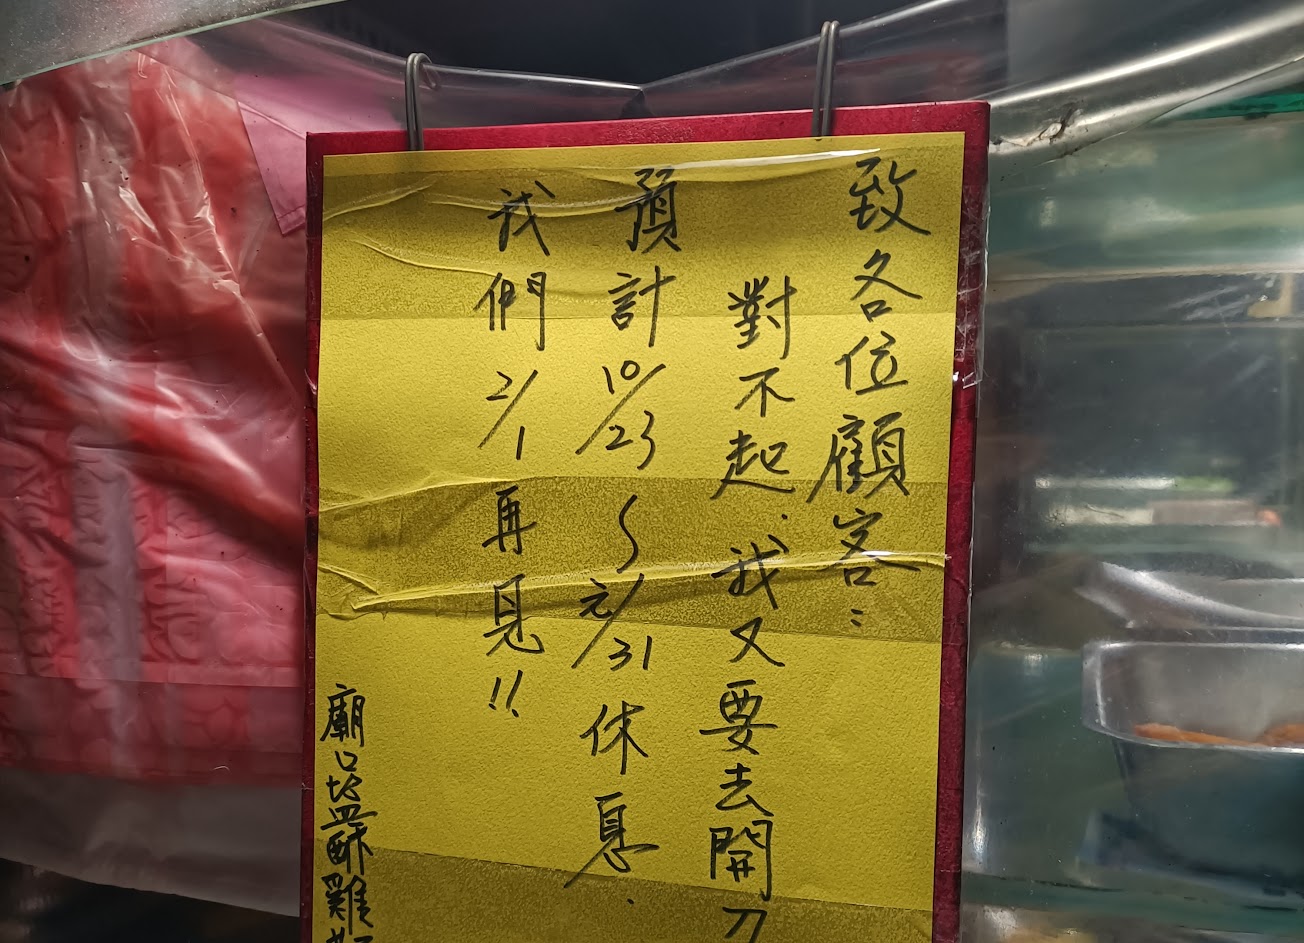 致各位顧客:
對不起.我又要去開刀
預計10/23~元/31休息.
我們2/1再見!!
廟口塩酥雞